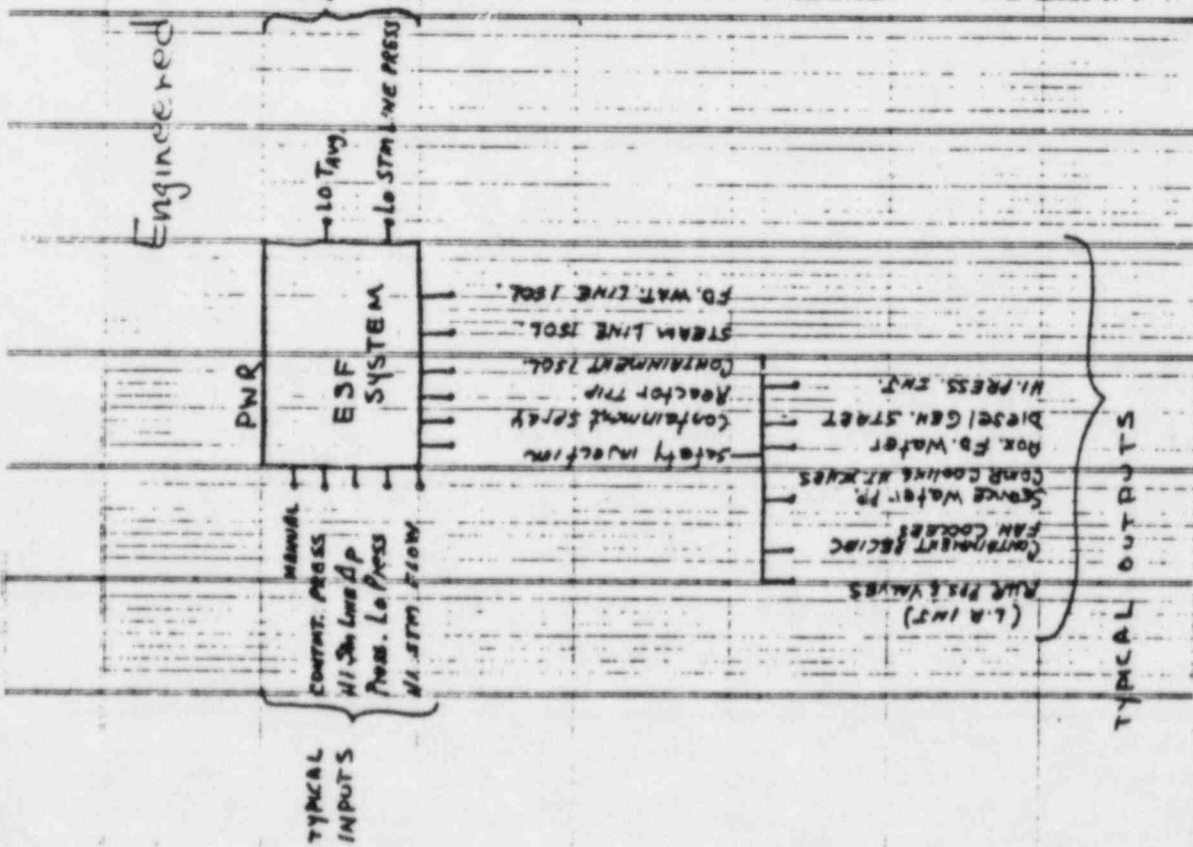 Engineered
PWR
ESF
SYSTEM
TYPICAL
INPUTS
MANUAL
CONTMT. PRESS
HI STM LINE ΔP
PRESS. LO PRESS
HI STM FLOW
LO TAVG.
LO STM LINE PRESS
FD. WAT. LINE ISOL.
STEAM LINE ISOL.
CONTAINMENT ISOL.
REACTOR TRIP
Containment Spray
Safety injection
HI. PRESS. INJ.
DIESEL GEN. START
AUX. FD. Water
COMP. COOLING
Service Water PP.
CONTAINMENT RECIRC
FAN COOLERS
RHR PPS & VALVES
TYPICAL OUTPUTS